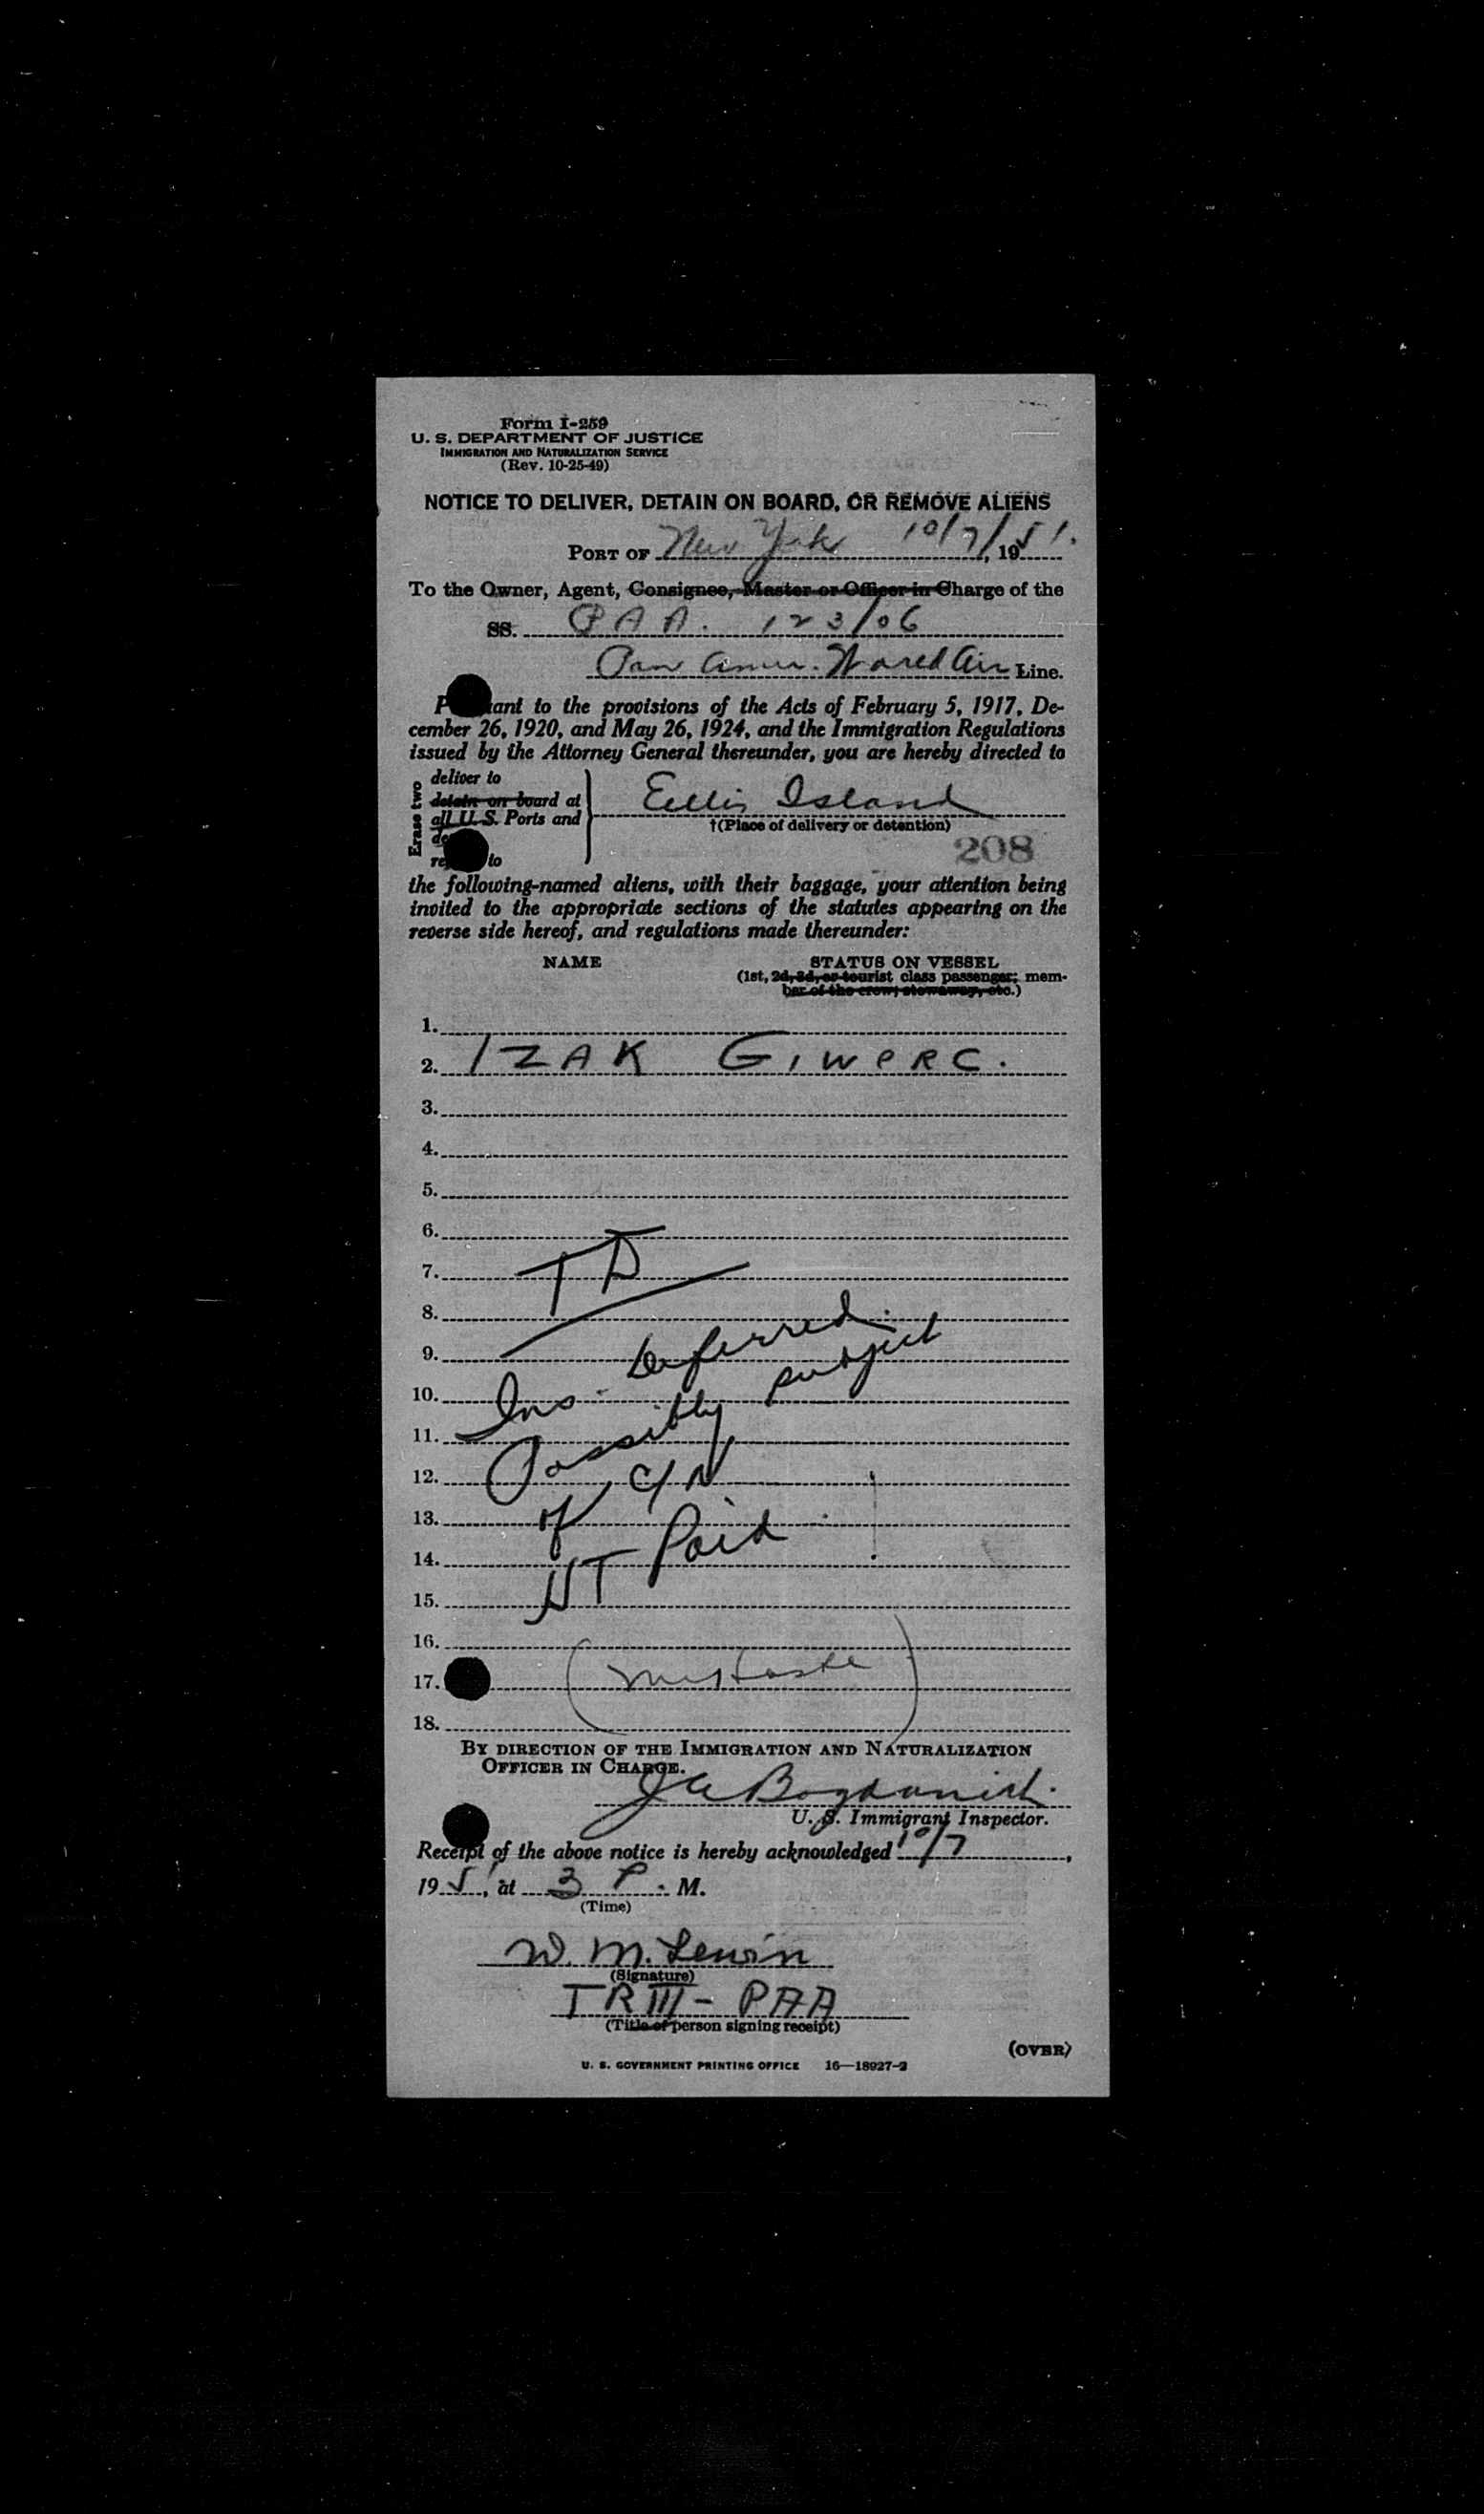 Form I-259
U. S. DEPARTMENT OF JUSTICE
IMMIGRATION AND NATURALIZATION SERVICE
(Rev. 10-25-49)
NOTICE TO DELIVER, DETAIN ON BOARD, OR REMOVE ALIENS
PORT OF New York 10/7/, 1951.
To the Owner, Agent, Consignee, Master or Officer in Charge of the
SS. PAA. 123/06
Pan Amer. World Air Line.
P ant to the provisions of the Acts of February 5, 1917, De-
cember 26, 1920, and May 26, 1924, and the Immigration Regulations
issued by the Attorney General thereunder, you are hereby directed to
Erase two
deliver to
detain on board at
all U. S. Ports and
de
re to
Ellis Island
†(Place of delivery or detention)
208
the following-named aliens, with their baggage, your attention being
invited to the appropriate sections of the statutes appearing on the
reverse side hereof, and regulations made thereunder:
NAME STATUS ON VESSEL
(1st, 2d, 3d, or tourist class passenger; mem-
ber of the crew; stowaway, etc.)
1.
2. IZAK GIWERC.
3.
4.
5.
6.
7. TD
8.
9. Deferred.
10. Ins. subject
11. Possibly
12. C/N
13. of
14. Paid
15. HT
16.
17.
18.
BY DIRECTION OF THE IMMIGRATION AND NATURALIZATION
OFFICER IN CHARGE.
J A Bogdanich.
U. S. Immigrant Inspector.
Receipt of the above notice is hereby acknowledged 10/7,
1951, at 3 P. M.
(Time)
W. M. Lewin
(Signature)
TR III - PAA
(Title of person signing receipt)
(OVER)
U. S. GOVERNMENT PRINTING OFFICE 16—18927-2